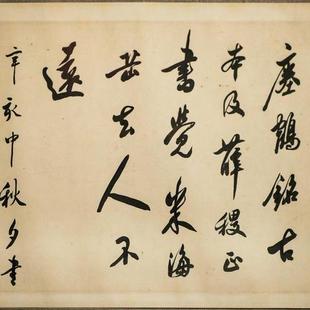 瘞鶴銘古
本及薛稷正
書覺米海
岳去人不
遠
辛亥中秋夕書